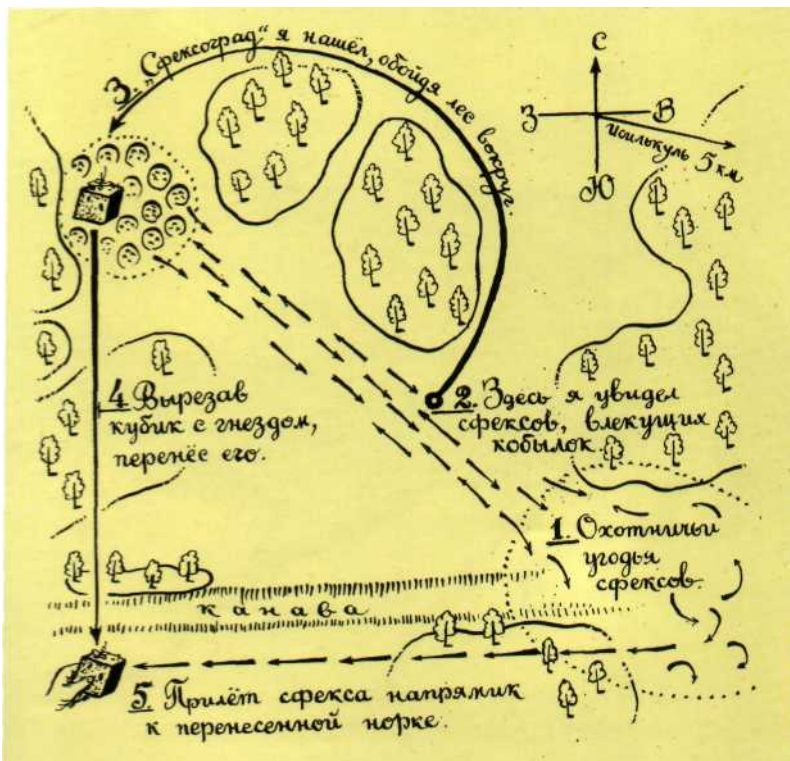 3. „Сфексоград“ я нашёл, обойдя лес вокруг.
С
З
В
Ю
Исилькуль 5 км
4. Вырезав
кубик с гнездом,
перенёс его.
2. Здесь я увидел
сфексов, влекущих
кобылок.
1. Охотничьи
угодья
сфексов.
канава
5. Прилёт сфекса напрямик
к перенесенной норке.